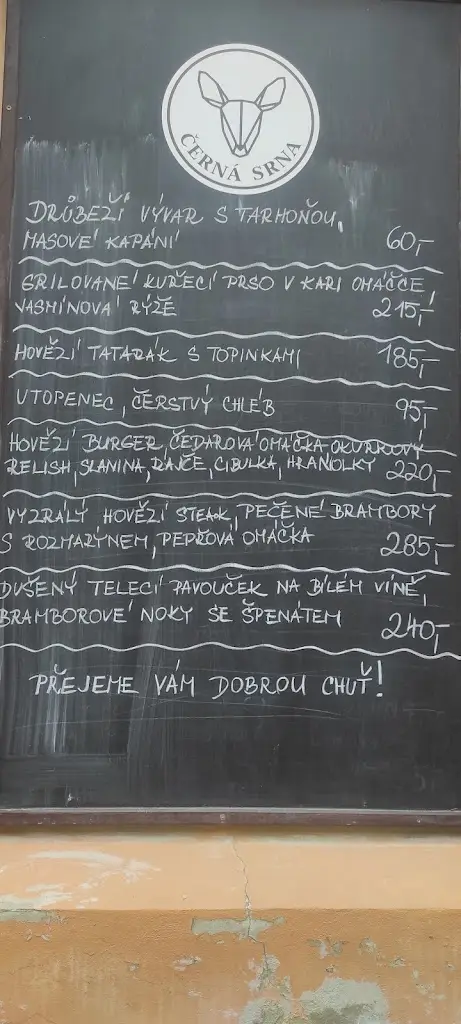 ČERNÁ SRNA
DRŮBEŽÍ VÝVAR S TARHOŇOU,
MASOVÉ KAPÁNÍ 60,-
GRILOVANÉ KUŘECÍ PRSO V KARI OMÁČCE,
JASMÍNOVÁ RÝŽE 215,-
HOVĚZÍ TATARÁK S TOPINKAMI 185,-
UTOPENEC, ČERSTVÝ CHLÉB 95,-
HOVĚZÍ BURGER, ČEDAROVÁ OMÁČKA, OKURKOVÝ
RELISH, SLANINA, RAJČE, CIBULKA, HRANOLKY 220,-
VYZRÁLÝ HOVĚZÍ STEAK, PEČENÉ BRAMBORY
S ROZMARÝNEM, PEPŘOVÁ OMÁČKA 285,-
DUŠENÝ TELECÍ PAVOUČEK NA BÍLÉM VÍNĚ,
BRAMBOROVÉ NOKY SE ŠPENÁTEM 240,-
PŘEJEME VÁM DOBROU CHUŤ!